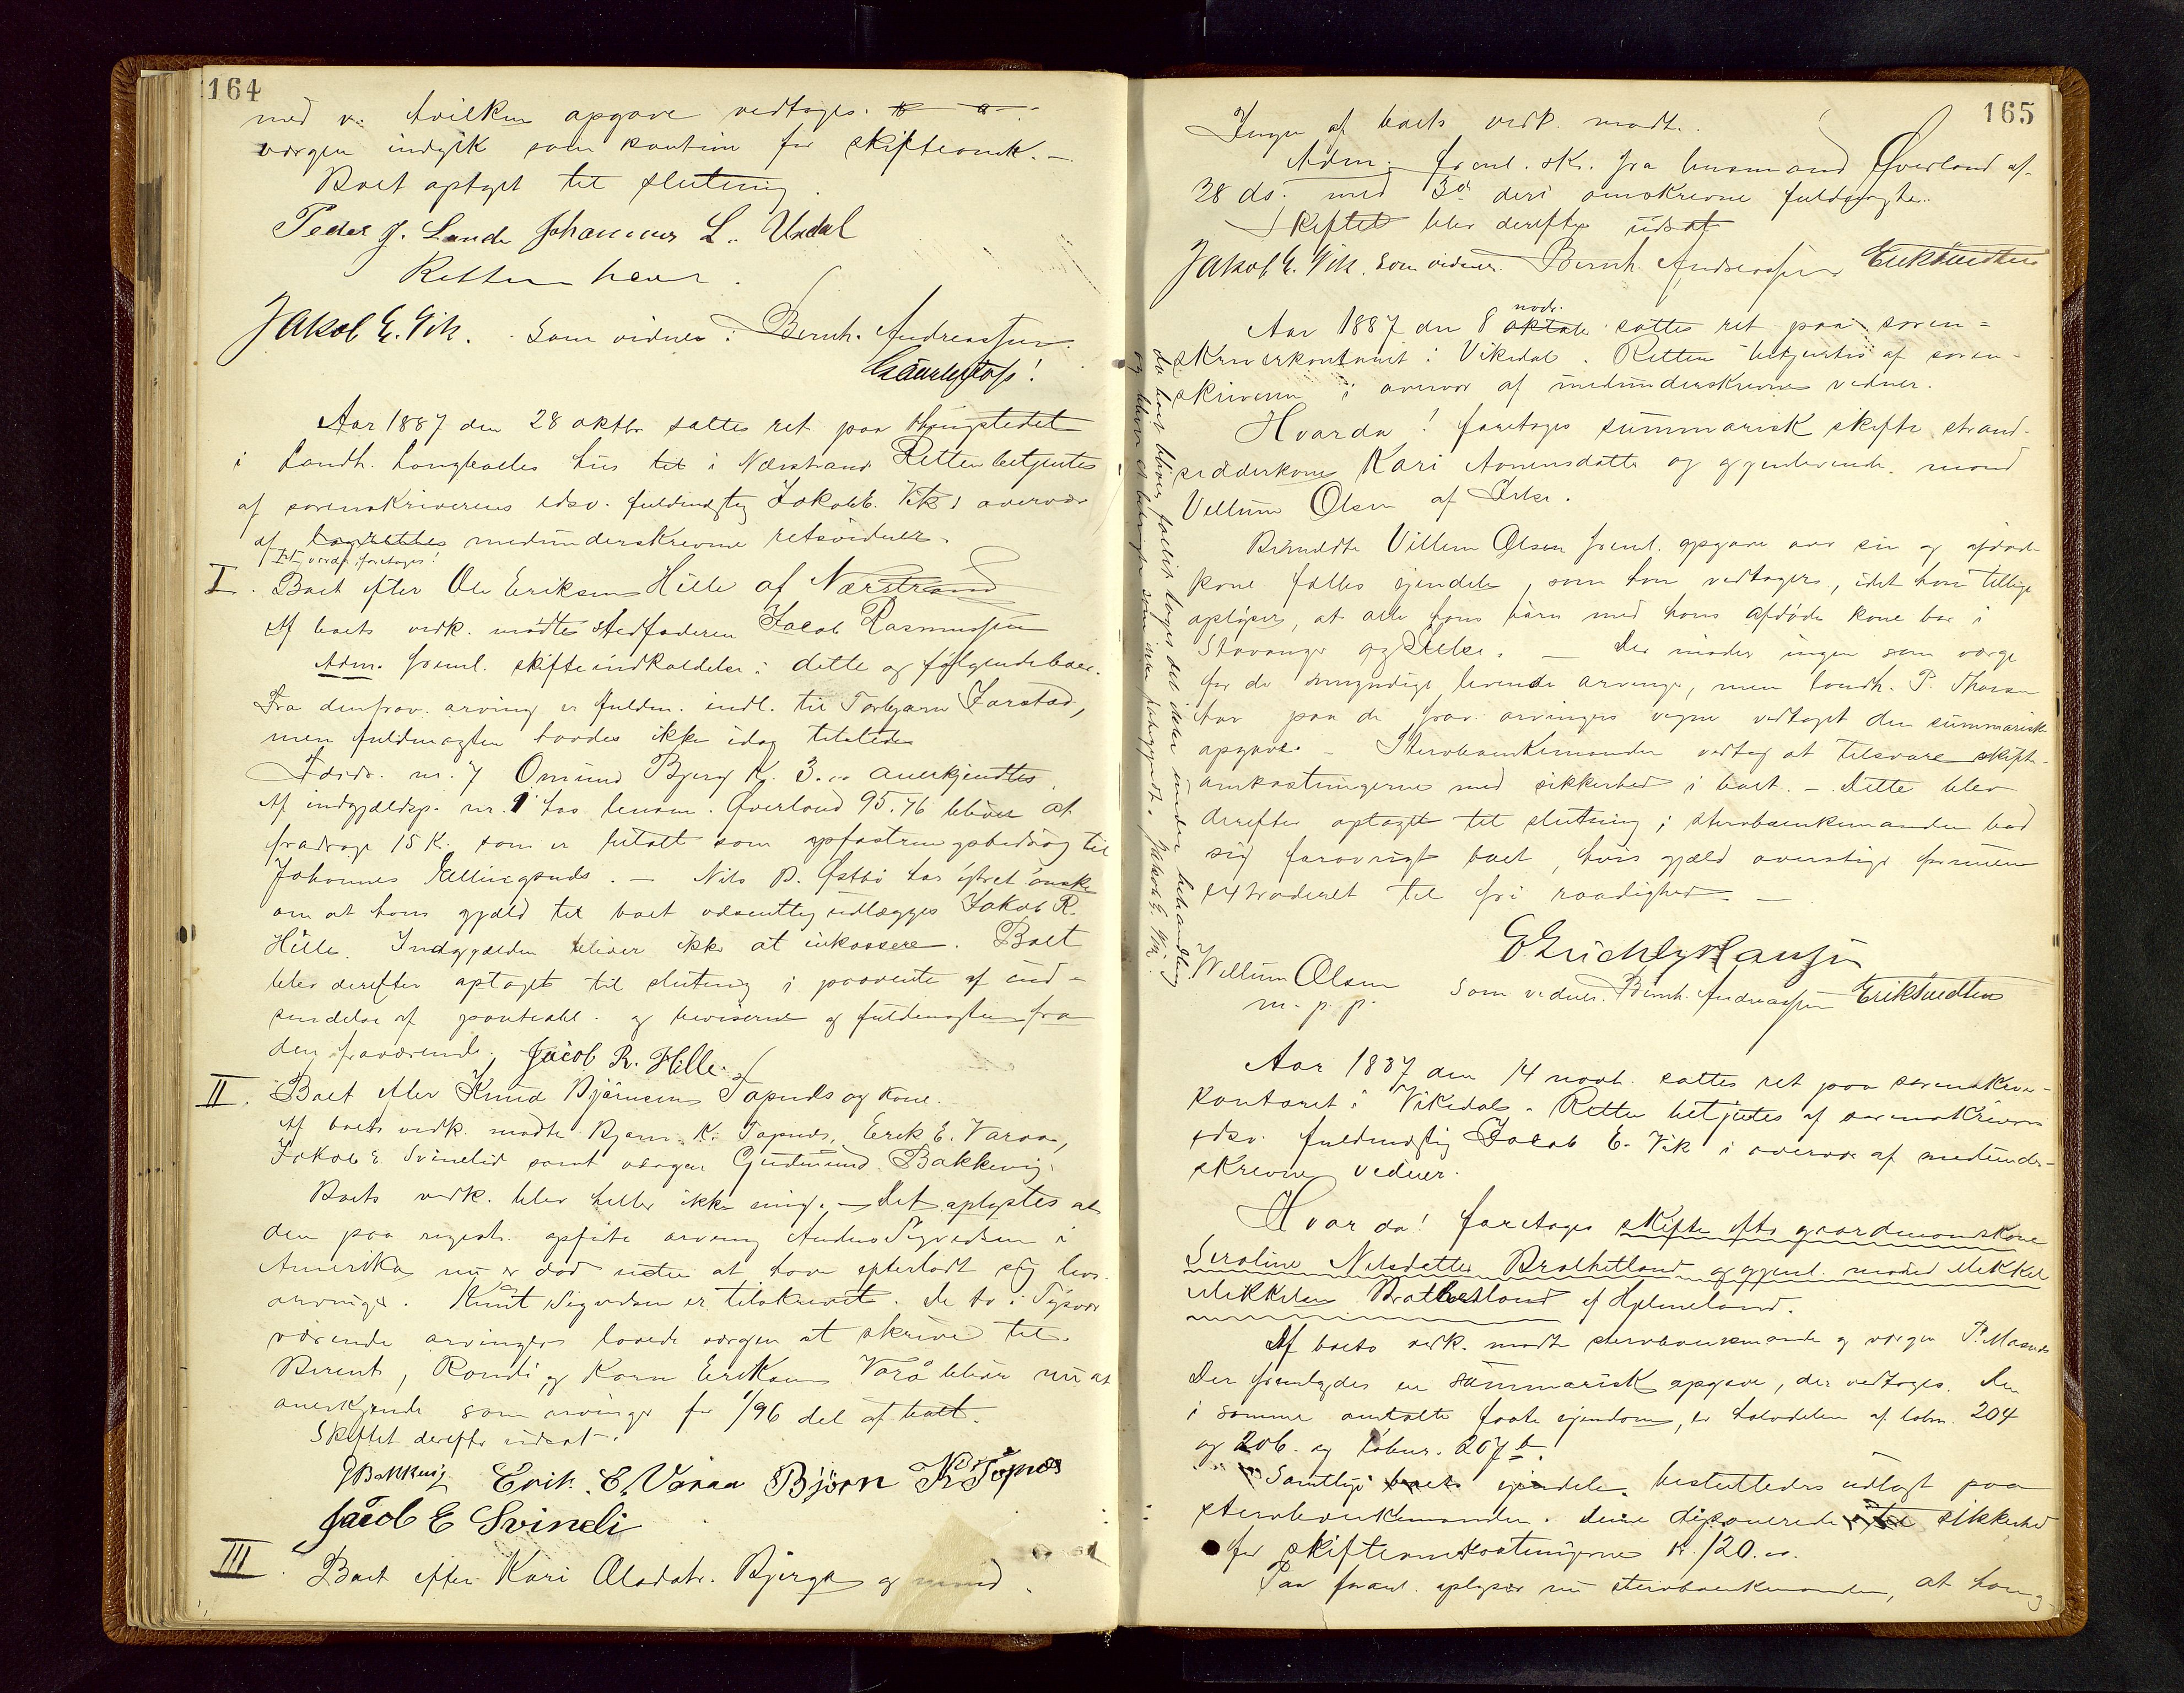 164
med v: hvilken opgave vedtages.
værgen indgik som kaution for skifteomk. –
Boet optaget til slutning.
Peder J. Lunde Johannes L. Undal
Retten hævet.
Jakob E. Vik. Som vidner: Bernh. Andreassen
Aar 1887 den 28 oktbr sattes ret paa thingstedet
i landh. Langballes hus i Nærstrand Retten betjentes
af sorenskriverens edsv. fuldmægtig Jakob E. Vik i overvær
af lagrettes medunderskrevne retsvidner.
Hvorda foretoges!
I. Boet efter Ole Eriksen Hille af Nærstrand
Af boets vedk. mødte stedfaderen Jacob Rasmussen
Adm. freml. skifteindkaldelse i dette og følgende boer.
Fra den frav. arving er fuldm. indl. til Torbjørn Jarstad,
men fuldmagten havdes ikke idag tilstede
Fordr. nr. 7 Omund Bjerg Kr. 3.00 anerkjendtes.
Af indgjældsp. nr. 1 hos lensm. Øverland 95.76 bliver at
fradrage 15 K. som er betalt som opfostringsbidrag til
Johannes Ellingsnds. – Nils B. Østbø har ytret ønske
om at hans gjæld til boet væsentlig udlægges Jakob R.
Hille. Indgjælden bliver ikke at inkassere. Boet
blev derefter optaget til slutning i paavente af ind-
sendelse af panteobl. og beviserne og fuldmagten fra
den fraværende. Jacob R. Hille.
II. Boet efter Knud Bjørnsen Tapnds og kone.
Af boets vedk. mødte Bjørn K. Tapnds, Erik E. Varaa,
Jakob E. Svinelid samt værgen Gudmund Bakkevig.
Boets vedk. blev heller ikke enig. – Det oplystes at
den paa registr. opførte arving Anders Sigvedsen i
Amerika nu er død uden at have efterladt sig livs-
arvinger. Knut Sigvedsen er tilskrevet. De to i Tysvær
værende arvinger lovede værgen at skrive til.
Berent, Randi og Karn Eriksen Varå bliver nu at
anerkjende som arvinger for 1/96 del af boet.
Skiftet derefter udsat.
GBakkevig Erik E. Varaa Bjørn K. Tapnds
Jacob E Svineli
III. Boet efter Kari Olsdatr. Bjerga og mand.
165
Ingen af boets vedk. mødte.
Adm. freml. skr. fra lensmand Øverland af
28 ds. med 3de deri omskrevne fuldmagter.
Skiftet blev derefter udsat
Jakob E. Vik. Som vidner. Bernh. Andreassen Erik Tuedten
Aar 1887 den 8 oktob novbr. sattes ret paa soren=
skriverkontoret i Vikedal. Retten betjentes af soren-
skriveren i overvær af medunderskrevne vidner.
Hvorda! foretoges summarisk skifte strand-
sidderkone Kari Aanensdatter og gjenlevende mand
Vellum Olsen af Ilsker.
Bemeldte Villem Olsen freml. opgave over sin og afdøde
kone fælles eiendele, som han vedtager, idet han tillige
oplyser, at alle hans børn med hans afdøde kone bor i
Stavanger og. – Der møder ingen som værge
for de umyndige levende arvinger, men landh. P. Thorsen
har paa de frav. arvingers vegne vedtaget den summariske
opgave. – Stervboenkemanden vedtog at tilsvare skift-
omkostningerne med sikkerhed i boet. – Dette blev
derefter optaget til slutning; stervboenkemanden bad
sig forøvrigt boet, hvis gjæld overstiger formuen
extraderet til fri raadighed. –
Wellum Olsen
m. p. p.
Som vidner. Bernh. Andreassen Erik Tuedten
Aar 1887 den 14 novb. sattes ret paa sorenskriver-
kontoret i Vikedal. Retten betjentes af sorenskriverens
edsv. fuldmægtig Jacob E. Vik i overvær af medunder-
skrevne vidner.
Hvor da! foretoges skifte efter gaardmandskone
Seraline Nilsdatter Brathetland og gjenl. mand Mikkel
Mikkelsen Brathetland af Hjelmeland.
Af boets vedk. mødte stervboenkemanden og værgen P. Maaned
Der fremlagdes en summarisk opgave, der vedtoges. Den
i samme omtalte faste eiendom, er halvdelen af løbnr. 204
og 206 og løbnr. 207 b.
Samtlige boets eiendele besluttedes udlagt paa
stervboenkemanden. Denne deponerede til sikkerhed
for skifteomkostningerne K. 120.00.
Paa foranl. oplyser nu stervboenkemanden, at han
da boet bliver fallit tages det under behandling
Jakob E. Vik.